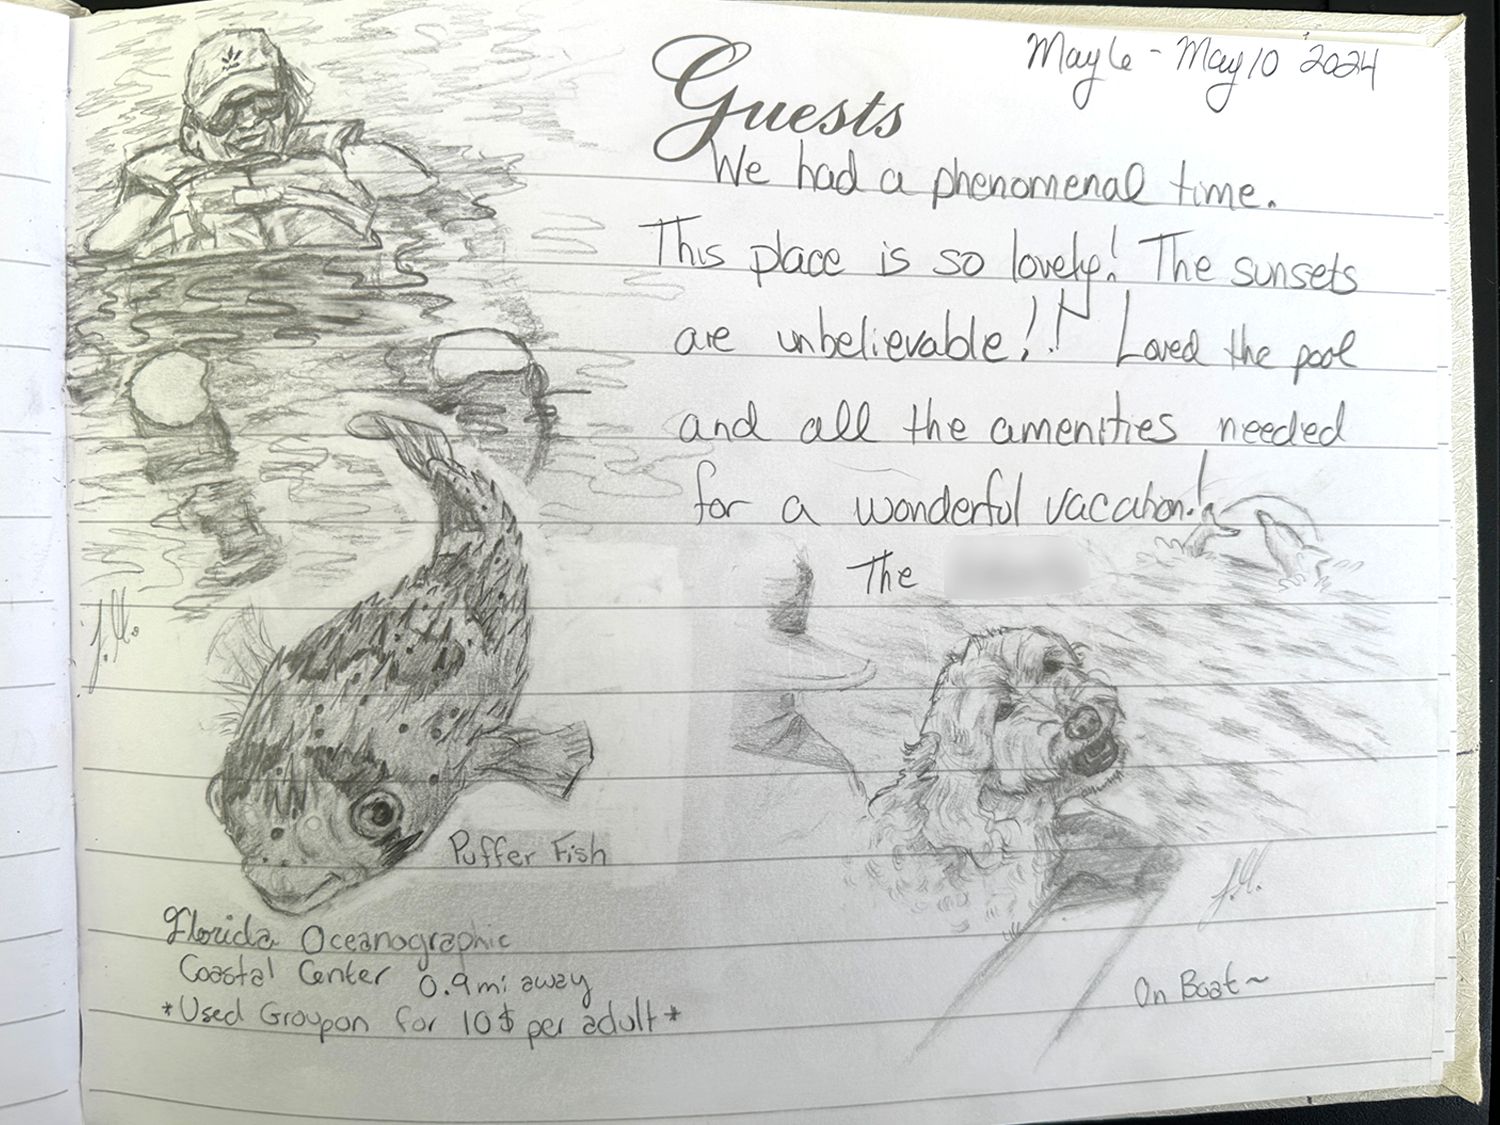 May 6 - May 10 2024
Guests
We had a phenomenal time.
This place is so lovely! The sunsets
are unbelievable!! Loved the pool
and all the amenities needed
for a wonderful vacation!
The
Puffer Fish
Florida Oceanographic
Coastal Center 0.9 mi away
*Used Groupon for 10$ per adult*
On Boat~